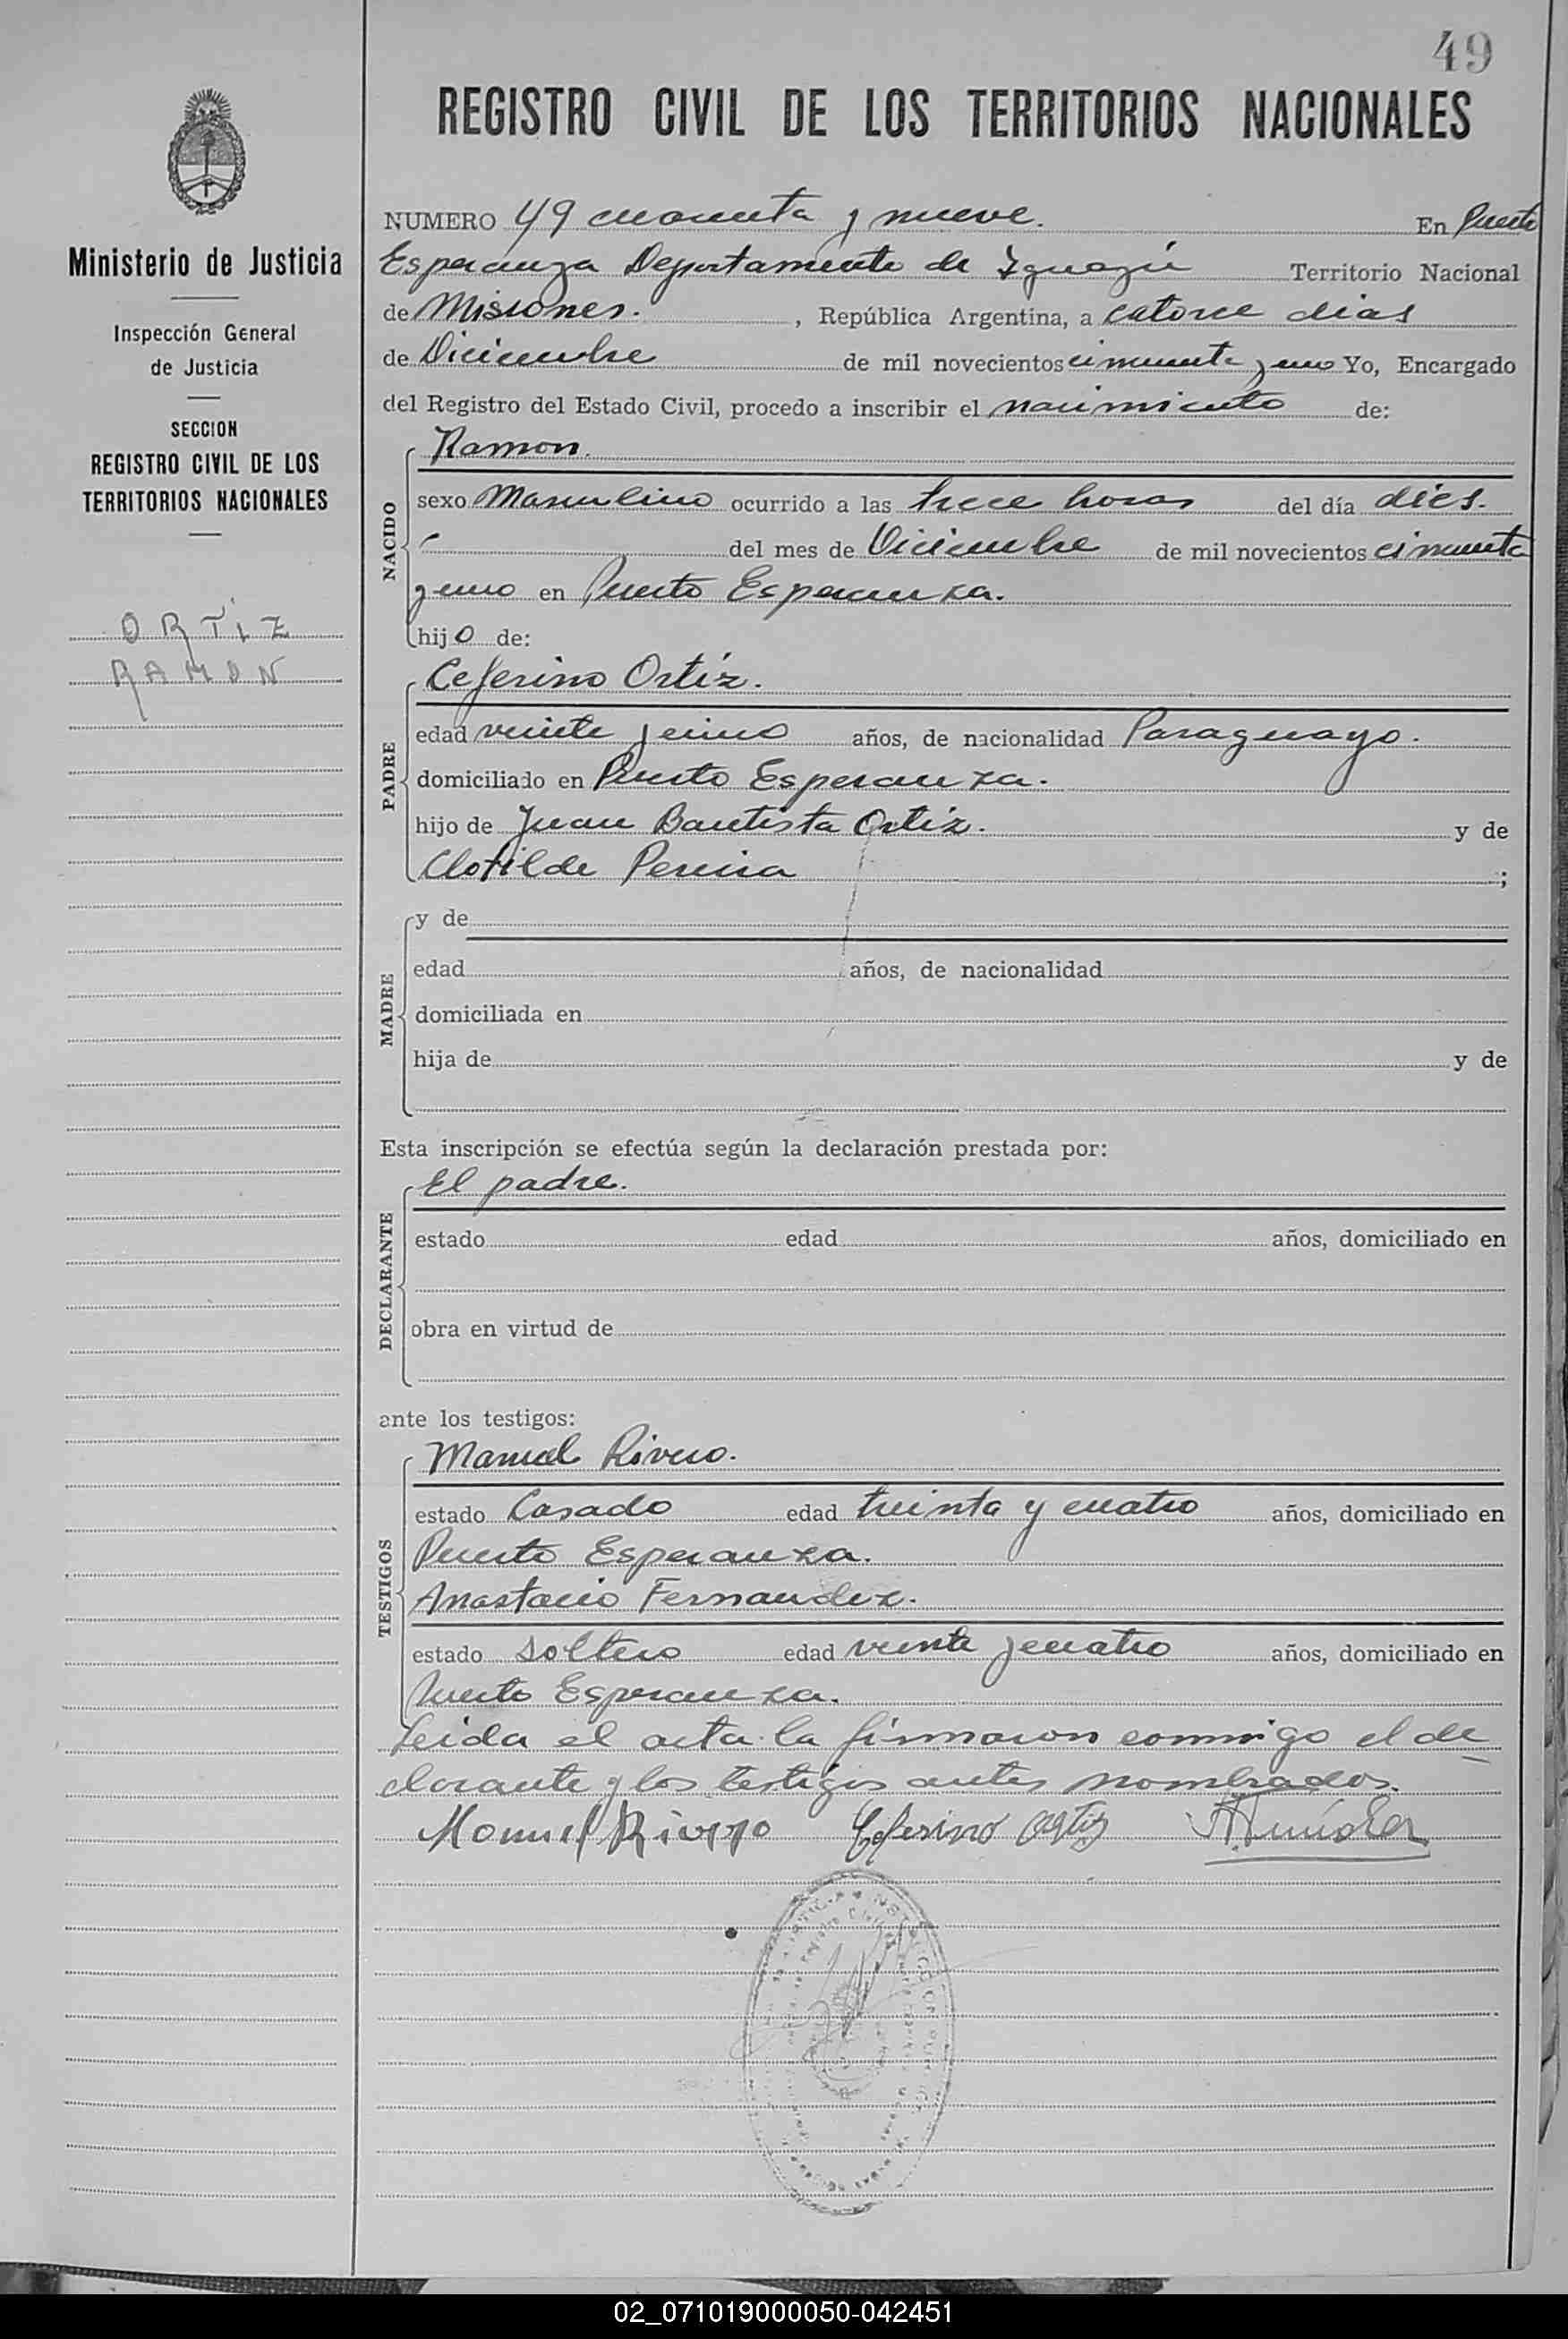 49
REGISTRO CIVIL DE LOS TERRITORIOS NACIONALES
Ministerio de Justicia
Inspección General
de Justicia
SECCION
REGISTRO CIVIL DE LOS
TERRITORIOS NACIONALES
ORTIZ
RAMON
NUMERO 49 cuarenta y nueve. En Puerto
Esperanza Departamento de Iguazú Territorio Nacional
de Misiones. , República Argentina, a catorce dias
de Diciembre de mil novecientos cincuenta y uno Yo, Encargado
del Registro del Estado Civil, procedo a inscribir el nacimiento de:
NACIDO
Ramon.
sexo Masculino ocurrido a las trece horas del día dies.
del mes de Diciembre de mil novecientos cincuenta
y uno en Puerto Esperanza.
hijo de:
PADRE
Ceferino Ortiz.
edad veinte y cinco años, de nacionalidad Paraguayo.
domiciliado en Puerto Esperanza.
hijo de Juan Bautista Ortiz. y de
Clotilde Pereira ;
MADRE
y de
edad años, de nacionalidad
domiciliada en
hija de y de
Esta inscripción se efectúa según la declaración prestada por:
DECLARANTE
El padre.
estado edad años, domiciliado en
obra en virtud de
ante los testigos:
TESTIGOS
Manuel Rivero.
estado Casado edad treinta y cuatro años, domiciliado en
Puerto Esperanza.
Anastacio Fernandez.
estado soltero edad veinte y cuatro años, domiciliado en
Puerto Esperanza.
Leida el acta la firmaron conmigo el de
clarante y los testigos antes nombrados.
Manuel Rivero Ceferino Ortiz
02_071019000050-042451